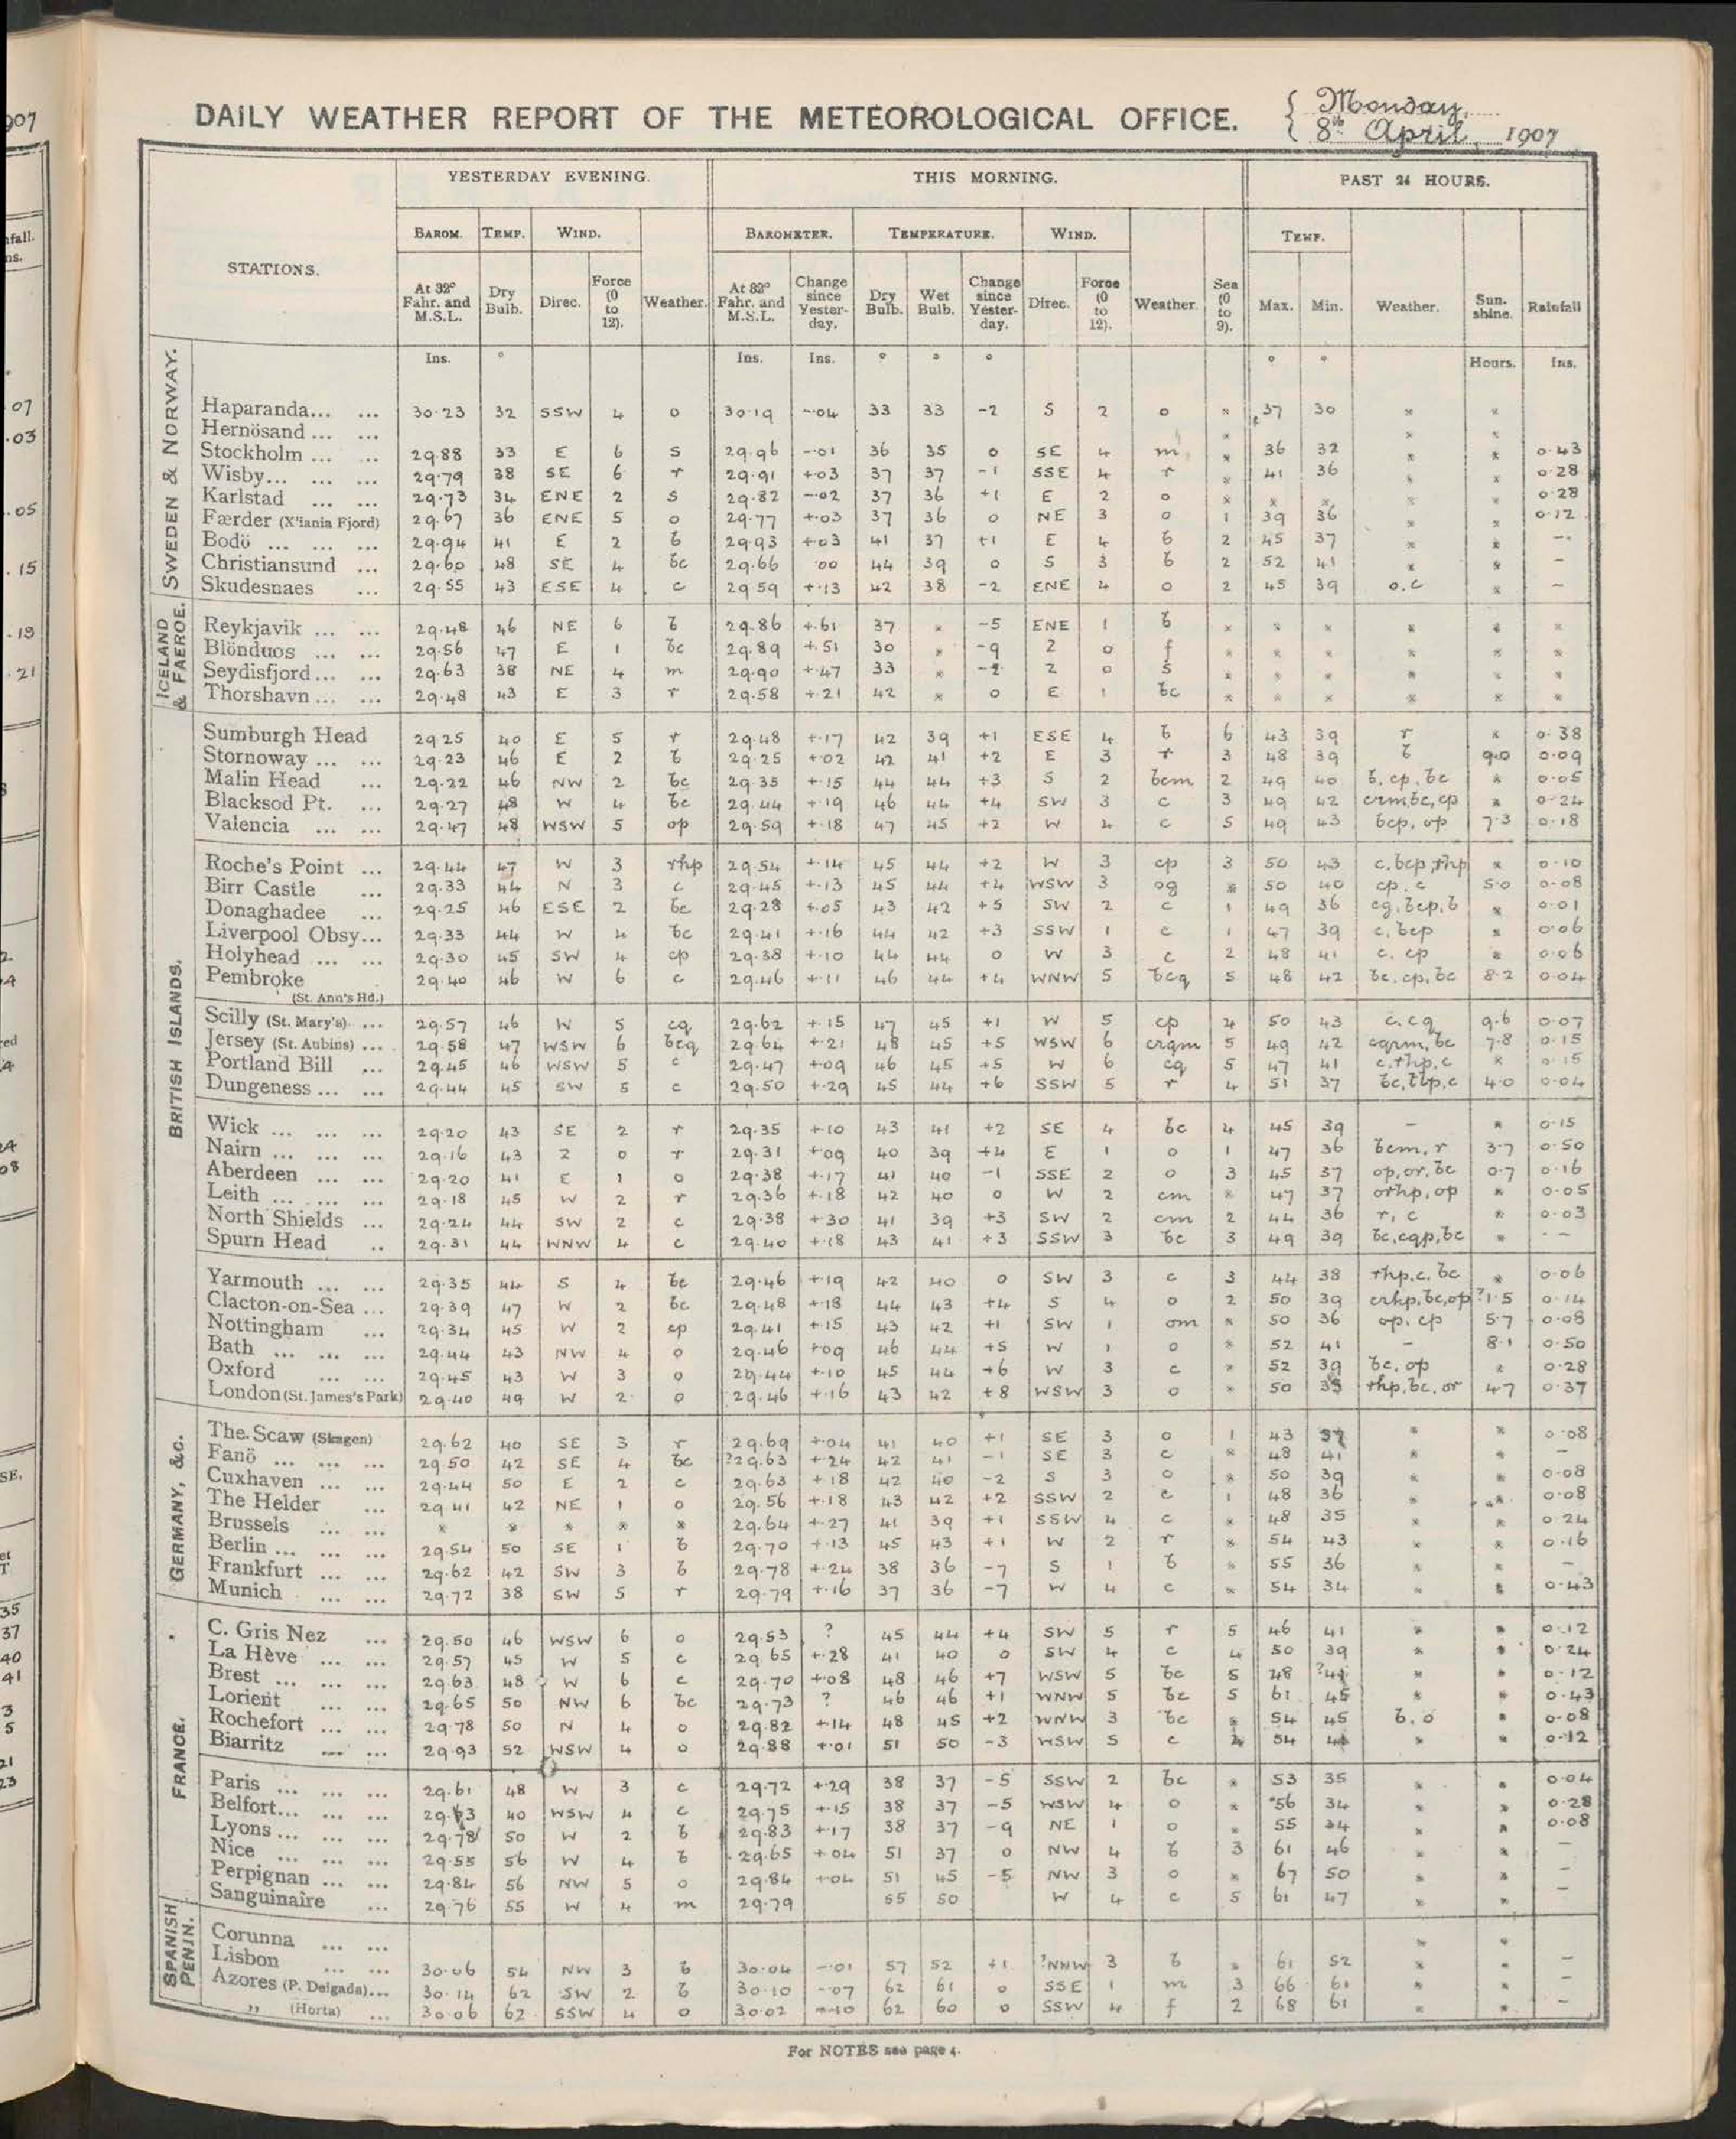 DAILY WEATHER REPORT OF THE METEOROLOGICAL OFFICE. Monday, 8th April, 1907
YESTERDAY EVENING. THIS MORNING. PAST 24 HOURS.
BAROM. TEMP. WIND. BAROMETER. TEMPERATURE. WIND. TEMP.
STATIONS. At 32° Fahr. and M.S.L. Dry Bulb. Direc. Force (0 to 12). Weather. At 32° Fahr. and M.S.L. Change since Yesterday. Dry Bulb. Wet Bulb. Change since Yesterday. Direc. Force (0 to 12). Weather. Sea (0 to 9). Max. Min. Weather. Sunshine. Rainfall
Ins. ° Ins. Ins. ° ° ° ° ° Hours. Ins.
SWEDEN & NORWAY.
Haparanda... ... 30.23 32 SSW 4 o 30.19 -.04 33 33 -2 S 2 o * 37 30 * *
Hernösand ... ... * * *
Stockholm ... ... 29.88 33 E 6 s 29.96 -.01 36 35 0 SE 4 m * 36 32 * * 0.43
Wisby... ... ... 29.79 38 SE 6 r 29.91 +.03 37 37 -1 SSE 4 r * 41 36 * * 0.28
Karlstad ... ... 29.73 34 ENE 2 s 29.82 -.02 37 36 +1 E 2 o * * * * * 0.28
Færder (X'iania Fjord) 29.67 36 ENE 5 o 29.77 +.03 37 36 0 NE 3 o 1 39 36 * * 0.12
Bodö ... ... ... 29.94 41 E 2 b 29.93 +.03 41 37 +1 E 4 b 2 45 37 * * -
Christiansund ... 29.60 48 SE 4 bc 29.66 .00 44 39 0 S 3 b 2 52 41 * * -
Skudesnaes ... 29.55 43 ESE 4 c 29.59 +.13 42 38 -2 ENE 4 o 2 45 39 o.c * -
ICELAND & FAEROE.
Reykjavik ... ... 29.48 46 NE 6 b 29.86 +.61 37 * -5 ENE 1 b * * * * * *
Blönduos ... ... 29.56 47 E 1 bc 29.89 +.51 30 * -9 Z 0 f * * * * * *
Seydisfjord... ... 29.63 38 NE 4 m 29.90 +.47 33 * -2 Z 0 s * * * * * *
Thorshavn ... ... 29.48 43 E 3 r 29.58 +.21 42 * 0 E 1 bc * * * * * *
BRITISH ISLANDS.
Sumburgh Head 29.25 40 E 5 r 29.48 +.17 42 39 +1 ESE 4 b 6 43 39 r * 0.38
Stornoway ... ... 29.23 46 E 2 b 29.25 +.02 42 41 +2 E 3 r 3 48 39 b 9.0 0.09
Malin Head ... 29.22 46 NW 2 bc 29.35 +.15 44 44 +3 S 2 bcm 2 49 40 b, cp, bc * 0.05
Blacksod Pt. ... 29.27 48 W 4 bc 29.44 +.19 46 44 +4 SW 3 c 3 49 42 crm,bc,cp * 0.24
Valencia ... ... 29.47 48 WSW 5 op 29.59 +.18 47 45 +2 W 4 c 5 49 43 bcp, op 7.3 0.18
Roche's Point ... 29.44 47 W 3 rhp 29.54 +.14 45 44 +2 W 3 cp 3 50 43 c.bcp,rhp * 0.10
Birr Castle ... 29.33 44 N 3 c 29.45 +.13 45 44 +4 WSW 3 og * 50 40 cp. c 5.0 0.08
Donaghadee ... 29.25 46 ESE 2 bc 29.28 +.05 43 42 +5 SW 2 c 1 49 36 cg,bcp,b * 0.01
Liverpool Obsy... 29.33 44 W 4 bc 29.41 +.16 44 42 +3 SSW 1 c 1 47 39 c. bcp * 0.06
Holyhead ... ... 29.30 45 SW 4 cp 29.38 +.10 44 44 0 W 3 c 2 48 41 c. cp * 0.06
Pembroke 29.40 46 W 6 c 29.46 +.11 46 44 +4 WNW 5 bcq 5 48 42 bc. cp, bc 8.2 0.04
(St. Ann's Hd.)
Scilly (St. Mary's) ... 29.57 46 W 5 cq 29.62 +.15 47 45 +1 W 5 cp 4 50 43 c. cq 9.6 0.07
Jersey (St. Aubins) ... 29.58 47 WSW 6 bcq 29.64 +.21 48 45 +5 WSW 6 crqm 5 49 42 cqrm, bc 7.8 0.15
Portland Bill ... 29.45 46 WSW 5 c 29.47 +.09 46 45 +5 W 6 cq 5 47 41 c,rhp,c * 0.15
Dungeness ... ... 29.44 45 SW 5 c 29.50 +.29 45 44 +6 SSW 5 r 4 51 37 4.0 0.04
Wick ... ... ... 29.20 43 SE 2 r 29.35 +.10 43 41 +2 SE 4 bc 4 45 39 - * 0.15
Nairn ... ... ... 29.16 43 Z 0 r 29.31 +.09 40 39 +4 E 1 o 1 47 36 bcm, r 3.7 0.50
Aberdeen ... ... 29.20 41 E 1 o 29.38 +.17 41 40 -1 SSE 2 o 3 45 37 op, or, bc 0.7 0.16
Leith ... ... ... 29.18 45 W 2 r 29.36 +.18 42 40 0 W 2 cm * 47 37 orhp, op * 0.05
North Shields ... 29.24 44 SW 2 c 29.38 +.30 41 39 +3 SW 2 cm 2 44 36 r, c * 0.03
Spurn Head .. 29.31 44 WNW 4 c 29.40 +.18 43 41 +3 SSW 3 bc 3 49 39 bc,cqp,bc * - -
Yarmouth ... ... 29.35 44 S 4 bc 29.46 +.19 42 40 0 SW 3 c 3 44 38 rhp,c, bc * 0.06
Clacton-on-Sea ... 29.39 47 W 2 bc 29.48 +.18 44 43 +4 S 4 o 2 50 39 crhp,bc,op ?1.5 0.14
Nottingham ... 29.34 45 W 2 cp 29.41 +.15 43 42 +1 SW 1 om * 50 36 op. cp 5.7 0.08
Bath ... ... ... 29.44 43 NW 4 o 29.46 +.09 46 44 +5 W 1 o * 52 41 - 8.1 0.50
Oxford ... ... 29.45 43 W 3 o 29.44 +.10 45 44 +6 W 3 c * 52 39 bc, op * 0.28
London (St. James's Park) 29.40 49 W 2 o 29.46 +.16 43 42 +8 WSW 3 o * 50 rhp,bc,or 4.7 0.37
GERMANY, &c.
The Scaw (Skagen) 29.62 40 SE 3 r 29.69 +.04 41 40 +1 SE 3 o 1 43 * * 0.08
Fanö ... ... ... 29.50 42 SE 4 bc ?29.63 +.24 42 41 -1 SE 3 c * 48 41 * * -
Cuxhaven ... ... 29.44 50 E 2 c 29.63 +.18 42 40 -2 S 3 o * 50 39 * * 0.08
The Helder ... 29.41 42 NE 1 o 29.56 +.18 43 42 +2 SSW 2 c 1 48 36 * * 0.08
Brussels ... ... * * * * * 29.64 +.27 41 39 +1 SSW 4 c * 48 35 * * 0.24
Berlin ... ... ... 29.54 50 SE 1 b 29.70 +.13 45 43 +1 W 2 r * 54 43 * * 0.16
Frankfurt ... ... 29.62 42 SW 3 b 29.78 +.24 38 36 -7 S 1 b * 55 36 * * -
Munich ... ... 29.72 38 SW 5 r 29.79 +.16 37 36 -7 W 4 c * 54 34 * * 0.43
FRANCE.
C. Gris Nez ... 29.50 46 WSW 6 o 29.53 ? 45 44 +4 SW 5 r 5 46 41 * * 0.12
La Hève ... ... 29.57 45 W 5 c 29.65 +.28 41 40 0 SW 4 c 4 50 39 * * 0.24
Brest ... ... ... 29.63 48 W 6 c 29.70 +.08 48 46 +7 WSW 5 bc 5 48 * * 0.12
Lorient ... ... 29.65 50 NW 6 bc 29.73 ? 46 46 +1 WNW 5 bc 5 61 45 * * 0.43
Rochefort ... ... 29.78 50 N 4 o 29.82 +.14 48 45 +2 WNW 3 bc * 54 45 b, o * 0.08
Biarritz ... ... 29.93 52 WSW 4 o 29.88 +.01 51 50 -3 WSW 5 c 54 * * 0.12
Paris ... ... ... 29.61 48 W 3 c 29.72 +.29 38 37 -5 SSW 2 bc * 53 35 * * 0.04
Belfort... ... ... 40 WSW 4 c 29.75 +.15 38 37 -5 WSW 4 o * 56 34 * * 0.28
Lyons ... ... ... 29.78 50 W 2 b 29.83 +.17 38 37 -9 NE 1 o * 55 34 * * 0.08
Nice ... ... ... 29.55 56 W 4 b 29.65 +.04 51 37 0 NW 4 b 3 61 46 * * -
Perpignan ... ... 29.84 56 NW 5 o 29.84 +.04 51 45 -5 NW 3 o * 67 50 * * -
Sanguinaire ... 29.76 55 W 4 m 29.79 55 50 W 4 c 5 61 47 * * -
SPANISH PENIN.
Corunna ... ... * *
Lisbon ... ... 30.06 54 NW 3 b 30.04 -.01 57 52 +1 ?NNW 3 b * 61 52 * * -
Azores (P. Delgada)... 30.14 62 SW 2 b 30.10 -.07 62 61 0 SSE 1 m 3 66 61 * * -
,, (Horta) ... 30.06 62 SSW 4 o 30.02 -.10 62 60 0 SSW 4 f 2 68 61 * * -
For NOTES see page 4.